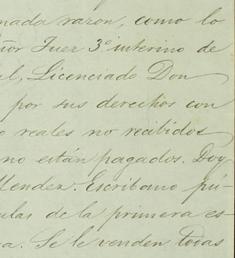 nada razon, como lo
ñor Juez 3º interino de
al, Licenciado Don
por sus derechos con
o reales no recibidos
no están pagados. Doy
Mendez: Escribano pú-
ulas de la primera es-
a. Se le venden todas